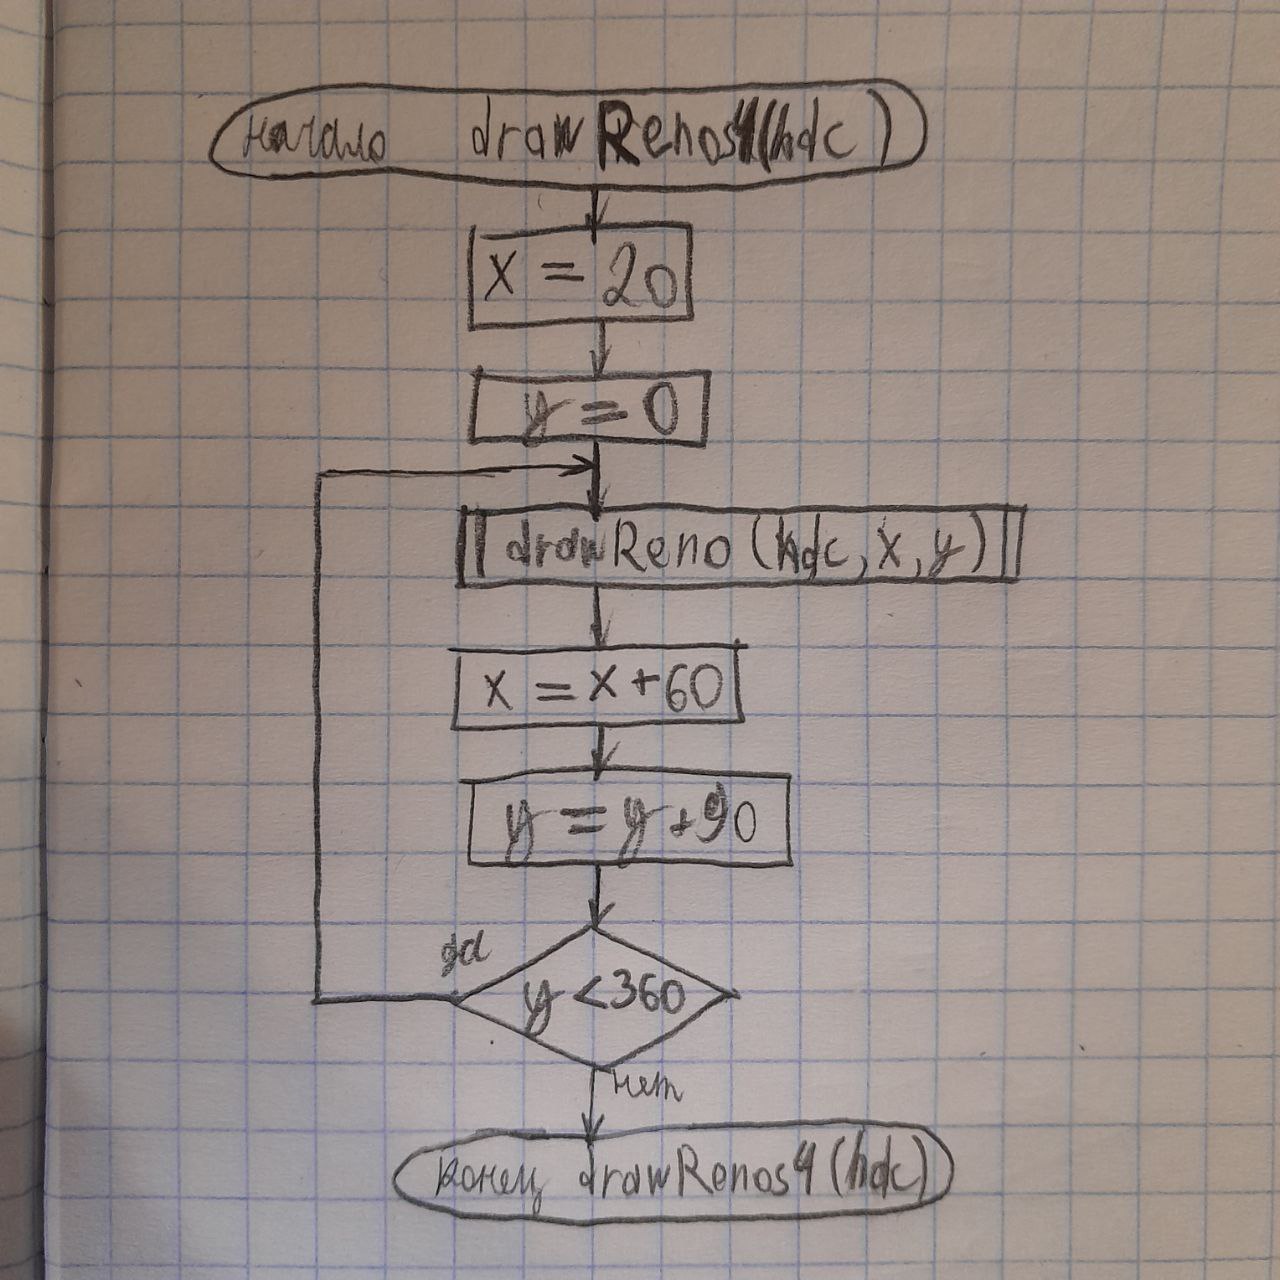 начало drawRenos4(hdc)
x = 20
y = 0
drawReno (hdc, x, y)
x = x + 60
y = y + 90
да
y < 360
нет
конец drawRenos4 (hdc)